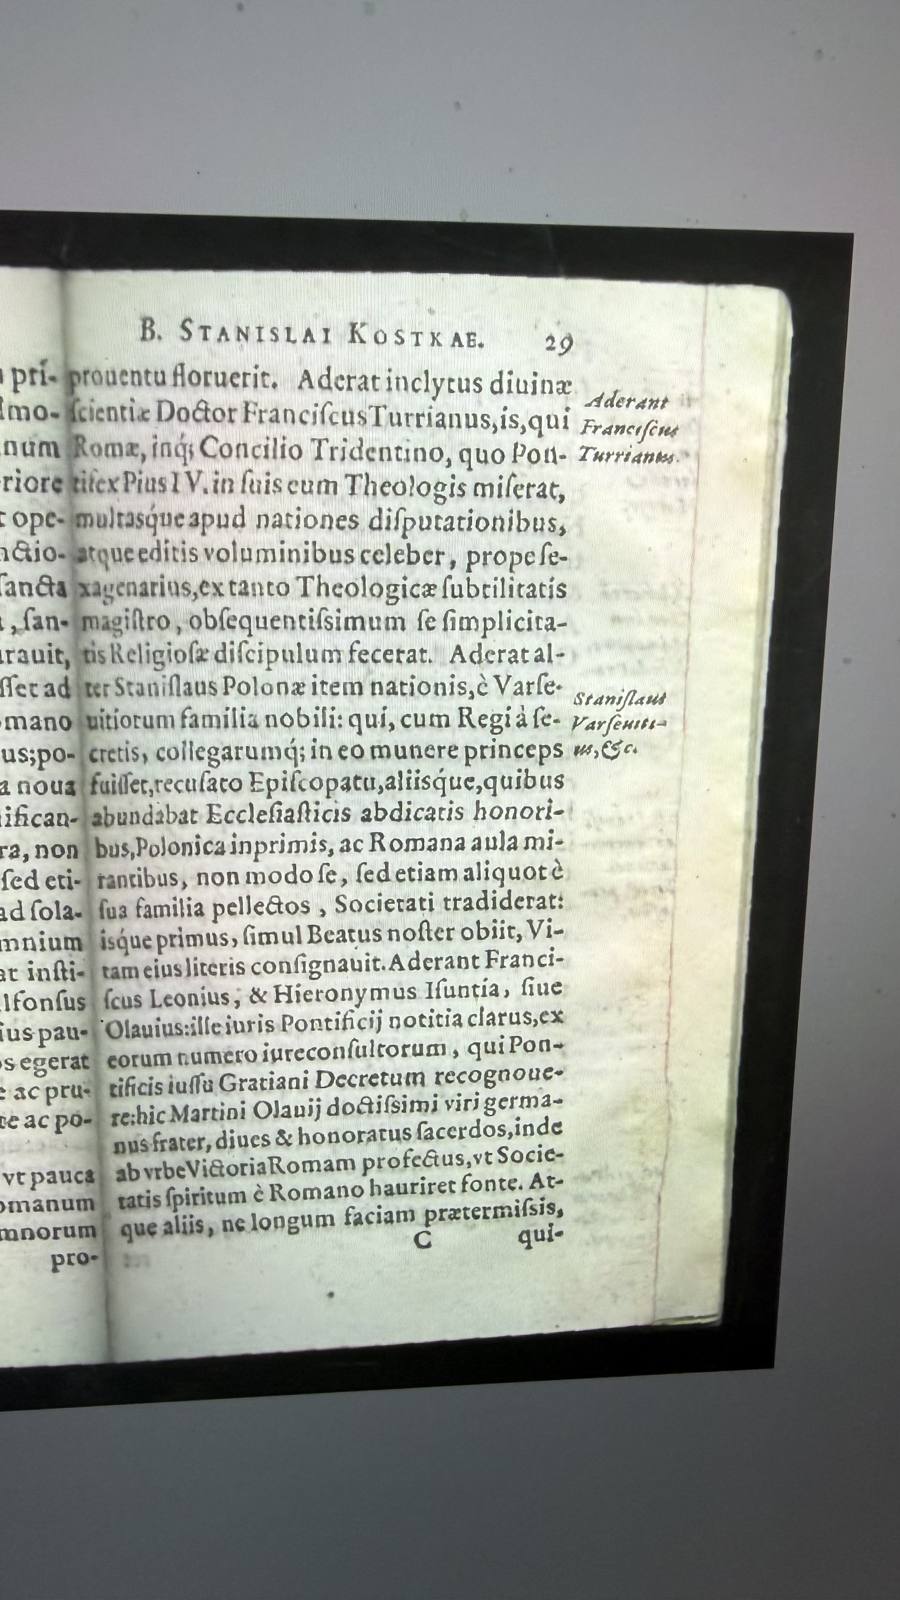 B. STANISLAI KOSTKAE. 29
prouentu floruerit. Aderat inclytus diuinæ
ſcientiæ Doctor Franciſcus Turrianus, is, qui
Romæ, inq́; Concilio Tridentino, quo Pon-
tifex Pius IV. in ſuis eum Theologis miſerat,
multasq́ue apud nationes diſputationibus,
atque editis voluminibus celeber, prope ſe-
xagenarius, ex tanto Theologicæ ſubtilitatis
magiſtro, obſequentiſsimum ſe ſimplicita-
tis Religioſæ diſcipulum fecerat. Aderat al-
ter Staniſlaus Polonæ item nationis, è Varſe-
uitiorum familia nobili: qui, cum Regi à ſe-
cretis, collegarumq́; in eo munere princeps
fuiſſet, recuſato Epiſcopatu, aliisq́ue, quibus
abundabat Eccleſiaſticis abdicatis honori-
bus, Polonica inprimis, ac Romana aula mi-
rantibus, non modo ſe, ſed etiam aliquot è
ſua familia pellectos, Societati tradiderat:
isq́ue primus, ſimul Beatus noſter obiit, Vi-
tam eius literis conſignauit. Aderant Franci-
ſcus Leonius, & Hieronymus Iſuntia, ſiue
Olauius: ille iuris Pontificij notitia clarus, ex
eorum numero iureconſultorum, qui Pon-
tificis iuſſu Gratiani Decretum recognoue-
re: hic Martini Olauij doctiſsimi viri germa-
nus frater, diues & honoratus ſacerdos, inde
ab vrbe Victoria Romam profectus, vt Socie-
tatis ſpiritum è Romano hauriret fonte. At-
que aliis, ne longum faciam prætermiſsis,
C qui-
Aderant
Franciſcus
Turrianus.
Staniſlaus
Varſeuiti-
us, &c.
pri-
mo-
num
riore
ope-
ctio-
ſancta
, ſan-
urauit,
ſſet ad
mano
us; po-
a noua
ifican-
ra, non
ſed eti-
ad ſola-
mnium
at inſti-
lfonſus
ius pau-
s egerat
ac pru-
te ac po-
vt pauca
omanum
mnorum
pro-